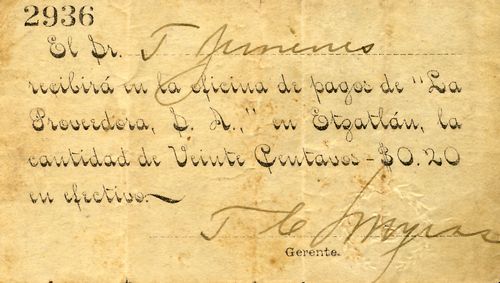 2936
El Sr. T Jimenes
recibirá en la oficina de pagos de "La
Proveedora, S. A.," en Etzatlán, la
cantidad de Veinte Centavos - $0.20
en efectivo.
T C
Gerente.